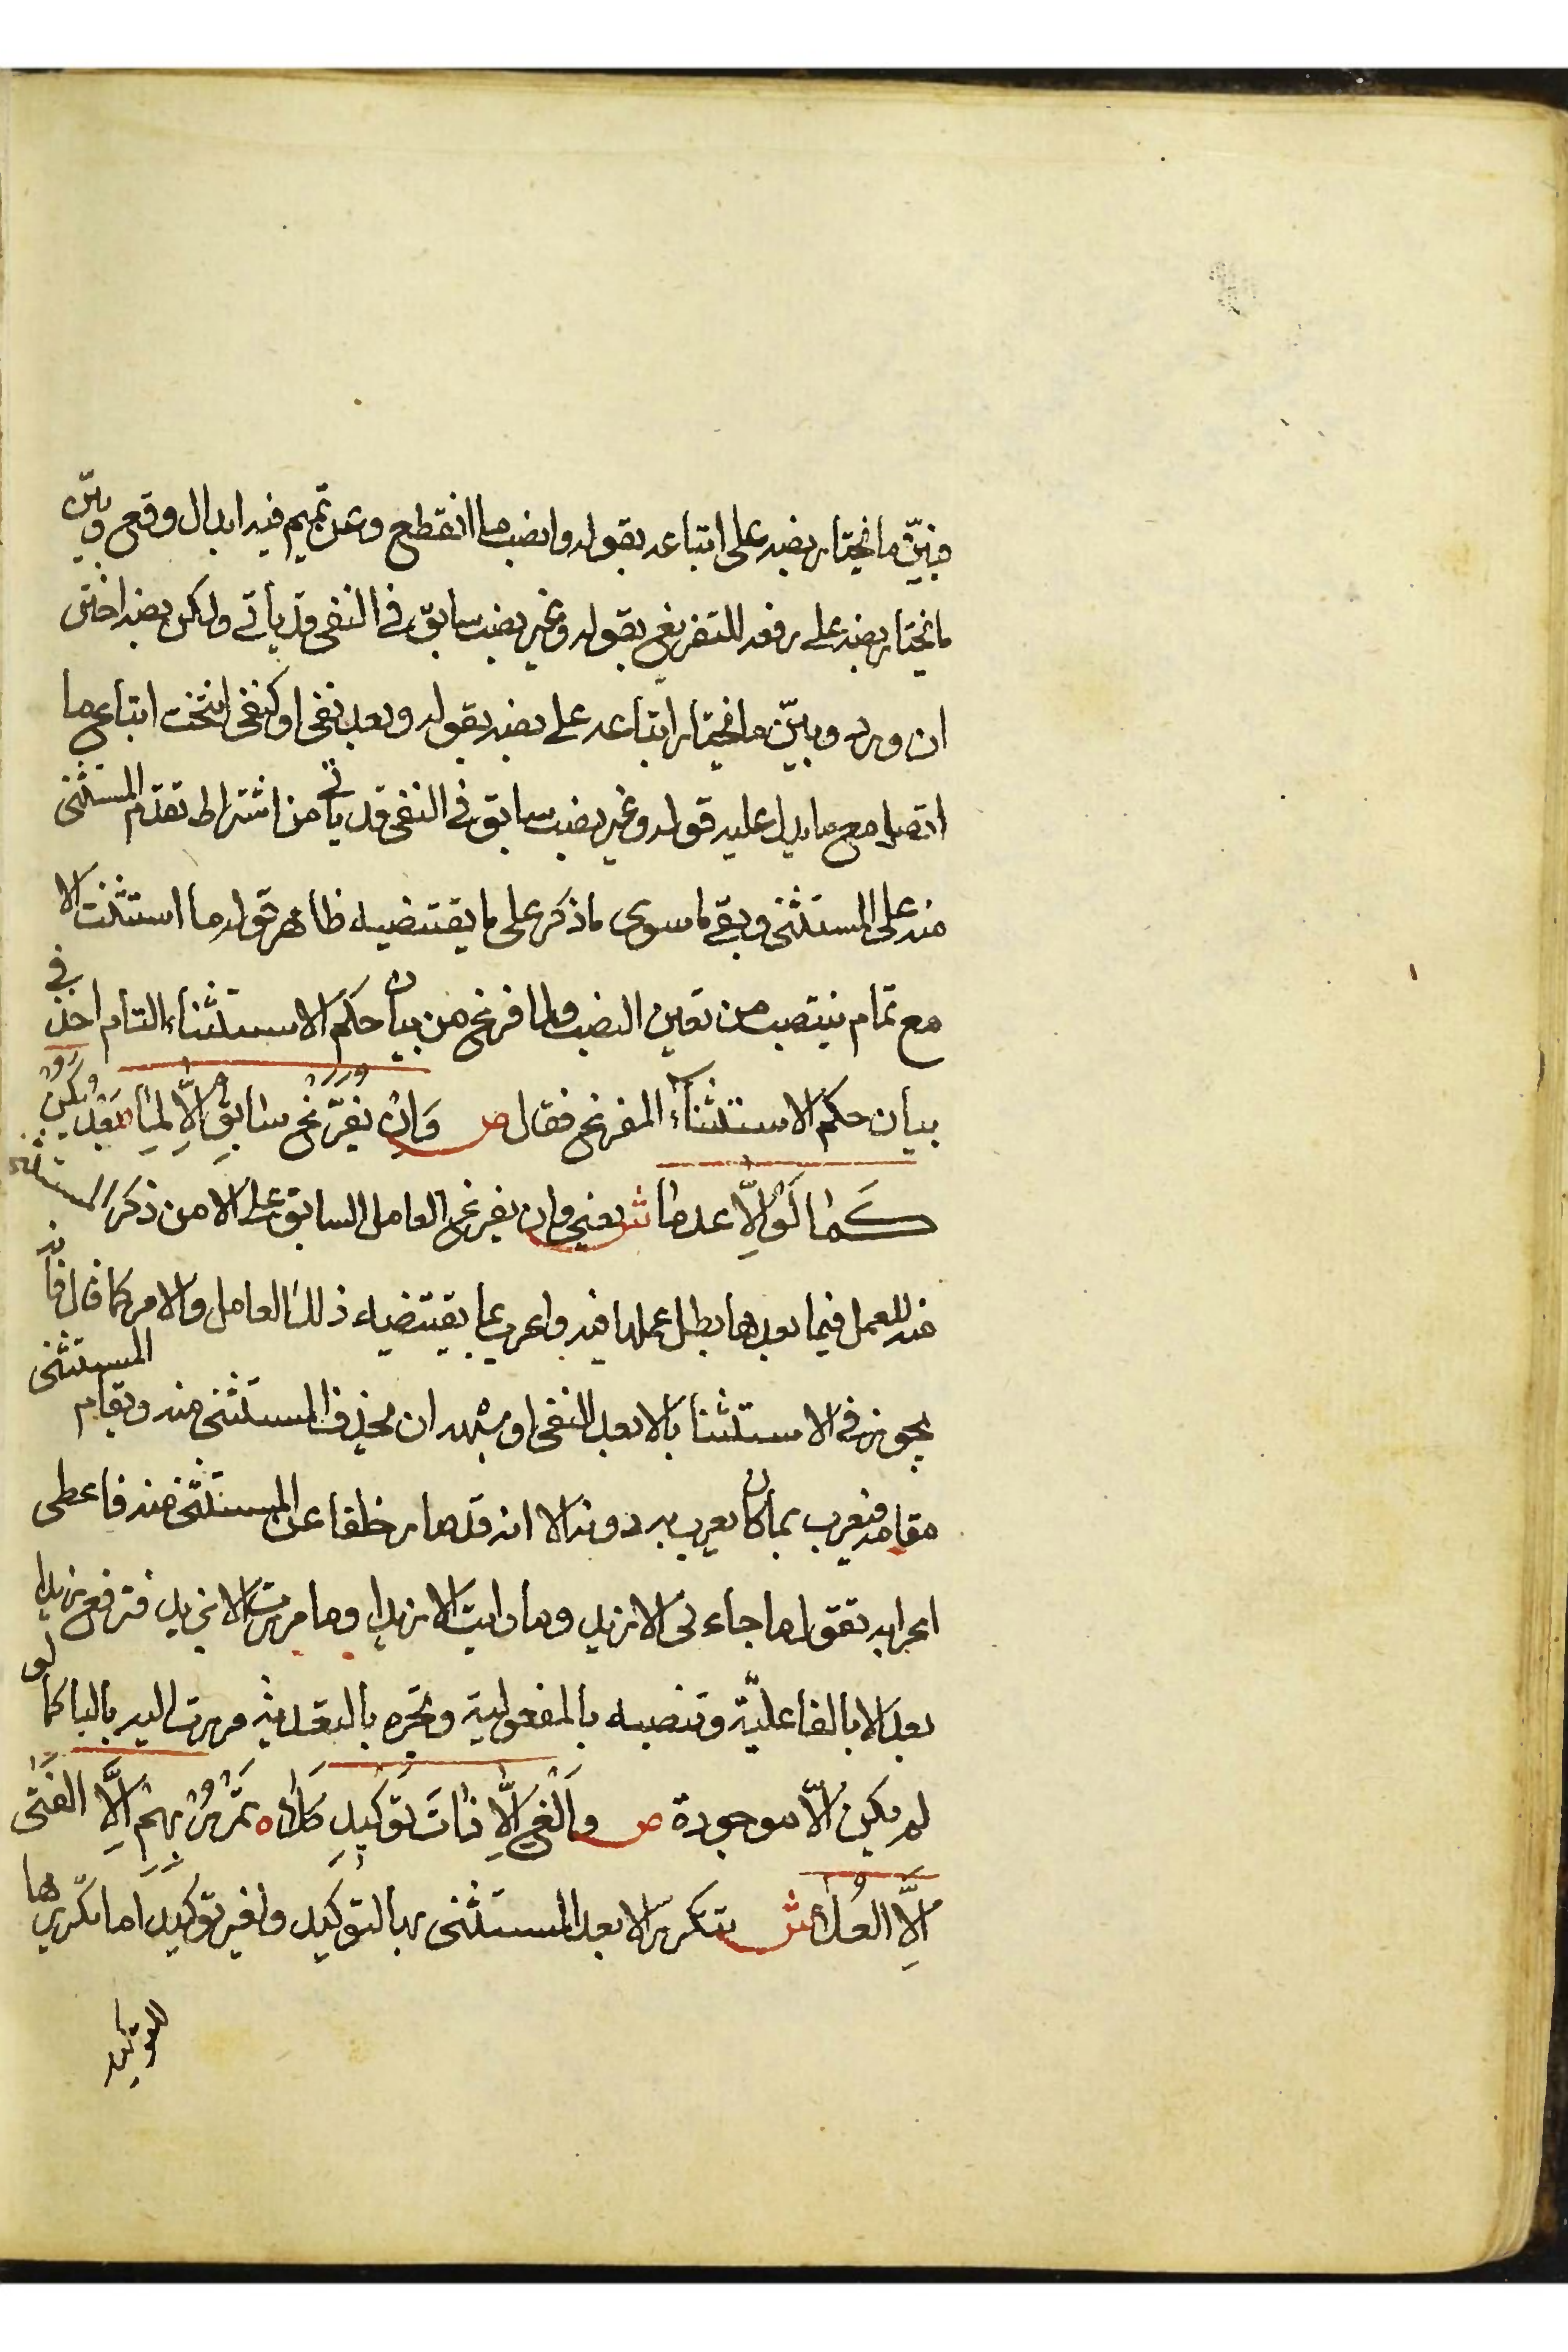 فبيّن ما يختار نصبه على اتباعه بقوله وانصب ما انقطع وعن تميم فيه ابدال وقع وبيّن
ما يختار نصبه على رفعه للتفريغ بقوله وغير نصب سابق في النفي قد يأتي ولكن نصبه اختر
ان ورد وبيّن ما يختار اتباعه على نصبه بقوله وبعد نفي او كنفي انتخب اتباع ما
اتصل مع ما يدل عليه قوله وغير نصب سابق في النفي قد ياتي من اشتراط تقدم المستثنى
منه على المستثنى وبقي ما سوى ما ذكر على ما يقتضيه ظاهر قوله ما استثنت الا
مع تمام ينتصب من تعين النصب ولما فرغ من بيان حكم الاستثناء التام اخذ في
بيان حكم الاستثناء المفرغ فقال ص وَاِنْ يُفَرَّغْ سَابِقٌ اِلَّا لِمَا بَعْدُ يَكُنْ
كَمَا لَوْ اِلَّا عدما ش يعني وان يفرغ العامل السابق على الا من ذكر المستثنى
منه للعمل فيما بعدها بطل عملها فيه واعرب بما يقتضيه ذلك العامل والامر كما قال فانه
يجوز في الاستثنا بالا بعد النفي او شبهه ان يحذف المستثنى منه ويقام المستثنى
مقامه فيعرب بما كان يعرب به دون الا انه قد صار خلفا عن المستثنى منه فاعطى
اعرابه تقول ما جاءني الا زيد وما رايت الا زيدا وما مررت الا بزيد فترفع زيدا
بعد الا بالفاعليّة وتنصبه بالمفعولية وتجره بالتعدية مررت اليه بالبا كما لو
لم يكن الّا موجودة ص وَاَلْغِ اِلَّا ذَاتَ تَوْكِيدٍ كَلَا ه تَمْرُرْ بِهِمْ اِلَّا الفَتَى
اِلَّا العُلَا ش تتكرر الا بعد المستثنى بها لتوكيد ولغير توكيد اما تكريرها
للتوكيد